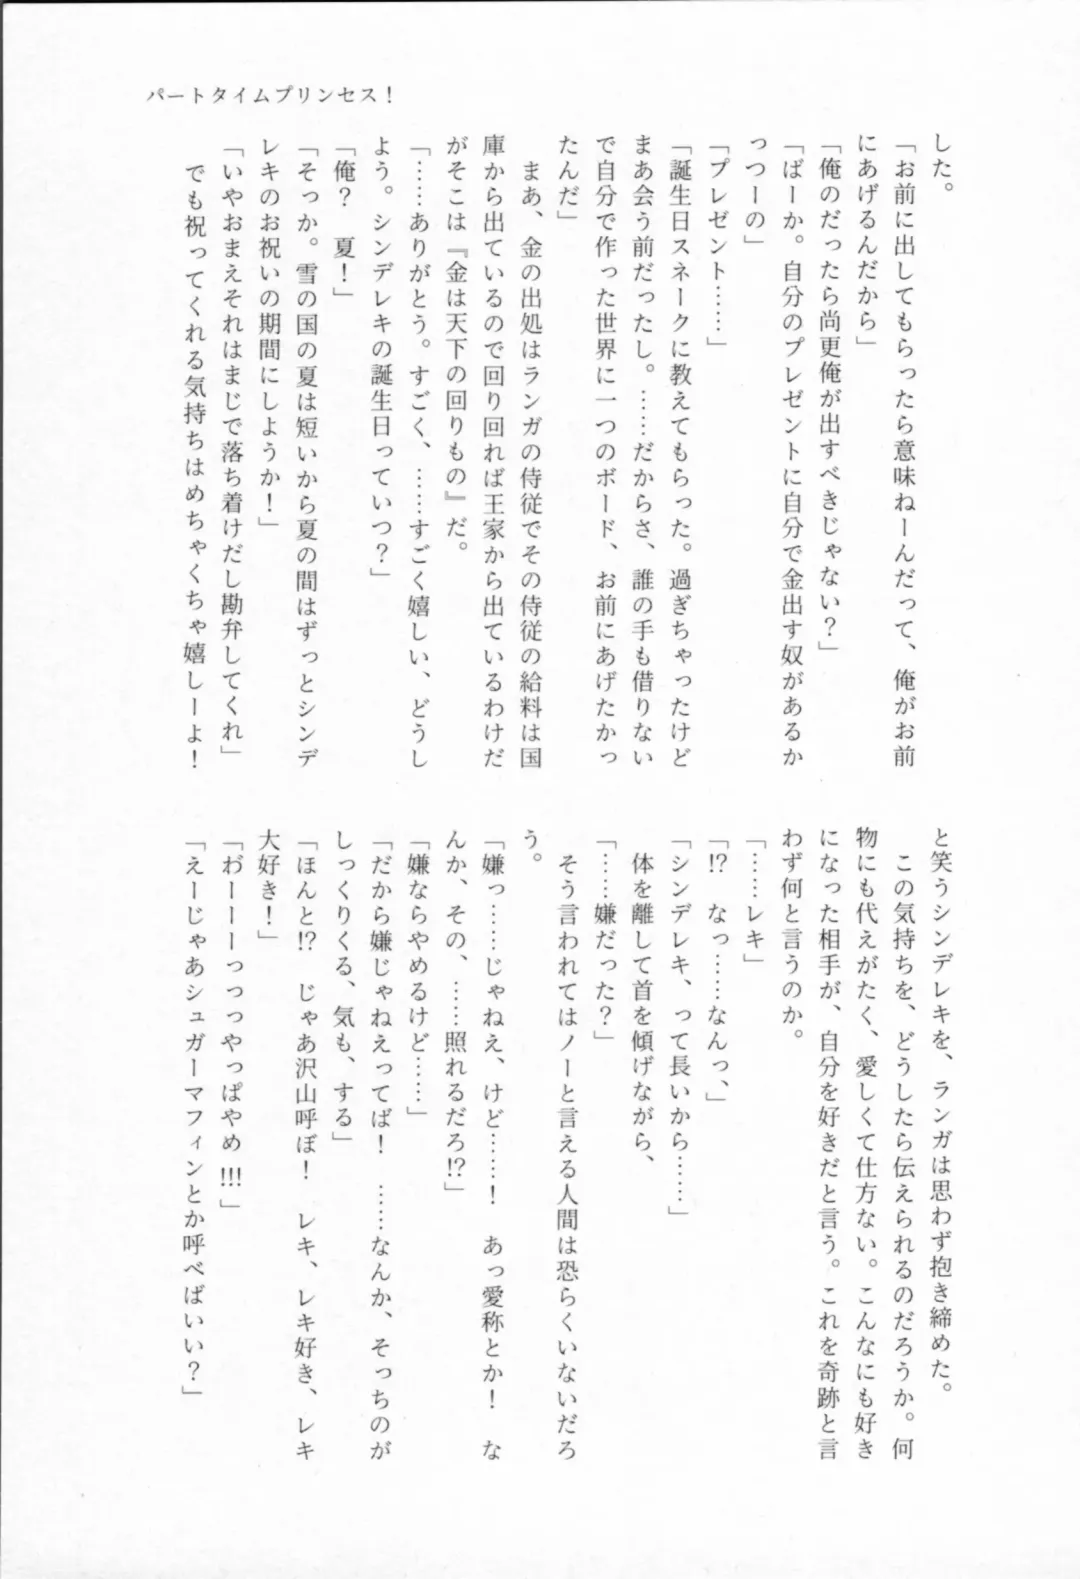 パートタイムプリンセス！
した。
「お前に出してもらったら意味ねーんだって、俺がお前
にあげるんだから」
「俺のだったら尚更俺が出すべきじゃない？」
「ばーか。自分のプレゼントに自分で金出す奴があるか
っつーの」
「プレゼント……」
「誕生日スネークに教えてもらった。過ぎちゃったけど
まあ会う前だったし。……だからさ、誰の手も借りない
で自分で作った世界に一つのボード、お前にあげたかっ
たんだ」
まあ、金の出処はランガの侍従でその侍従の給料は国
庫から出ているので回り回れば王家から出ているわけだ
がそこは『金は天下の回りもの』だ。
「……ありがとう。すごく、……すごく嬉しい、どうし
よう。シンデレキの誕生日っていつ？」
「俺？　夏！」
「そっか。雪の国の夏は短いから夏の間はずっとシンデ
レキのお祝いの期間にしようか！」
「いやおまえそれはまじで落ち着けだし勘弁してくれ」
でも祝ってくれる気持ちはめちゃくちゃ嬉しーよ！
と笑うシンデレキを、ランガは思わず抱き締めた。
この気持ちを、どうしたら伝えられるのだろうか。何
物にも代えがたく、愛しくて仕方ない。こんなにも好き
になった相手が、自分を好きだと言う。これを奇跡と言
わず何と言うのか。
「……レキ」
「!?　なっ……なんっ、」
「シンデレキ、って長いから……」
体を離して首を傾げながら、
「……嫌だった？」
そう言われてはノーと言える人間は恐らくいないだろ
う。
「嫌っ……じゃねえ、けど……！　あっ愛称とか！　な
んか、その、……照れるだろ!?」
「嫌ならやめるけど……」
「だから嫌じゃねえってば！　……なんか、そっちのが
しっくりくる、気も、する」
「ほんと!?　じゃあ沢山呼ぼ！　レキ、レキ好き、レキ
大好き！」
「わ゙ーーーっっっやっぱやめ!!!」
「えーじゃあシュガーマフィンとか呼べばいい？」